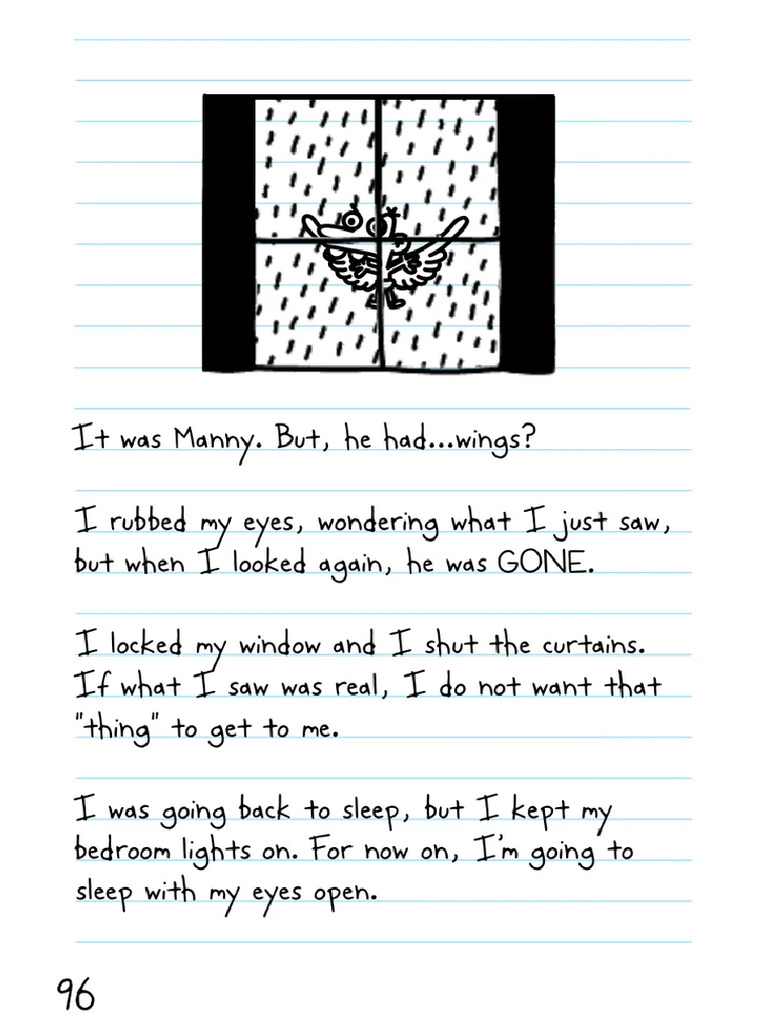 It was Manny. But, he had...wings?
I rubbed my eyes, wondering what I just saw,
but when I looked again, he was GONE.
I locked my window and I shut the curtains.
If what I saw was real, I do not want that
"thing" to get to me.
I was going back to sleep, but I kept my
bedroom lights on. For now on, I'm going to
sleep with my eyes open.
96